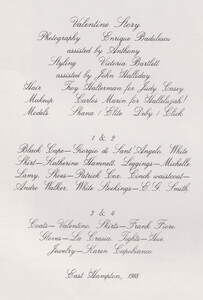 Valentine Story
Photography Enrique Badulescu
assisted by Anthony
Styling Victoria Bartlett
assisted by John Halliday
Hair Troy Halterman for Judy Casey
Makeup Carlos Marin for Hallelujah!
Models Shana / Elite Deby / Click
1 & 2
Black Cape—Giorgio di Sant'Angelo. White
Skirt—Katherine Hamnett. Leggings—Michelle
Lamy. Shoes—Patrick Cox. Cinch waistcoat—
Andre Walker. White Stockings—E.G. Smith.
3 & 4
Coats—Valentino. Shirts—Frank Fiore.
Gloves—La Crasia. Tights—Hue.
Jewelry—Karen Capobianco.
East Hampton, 1988